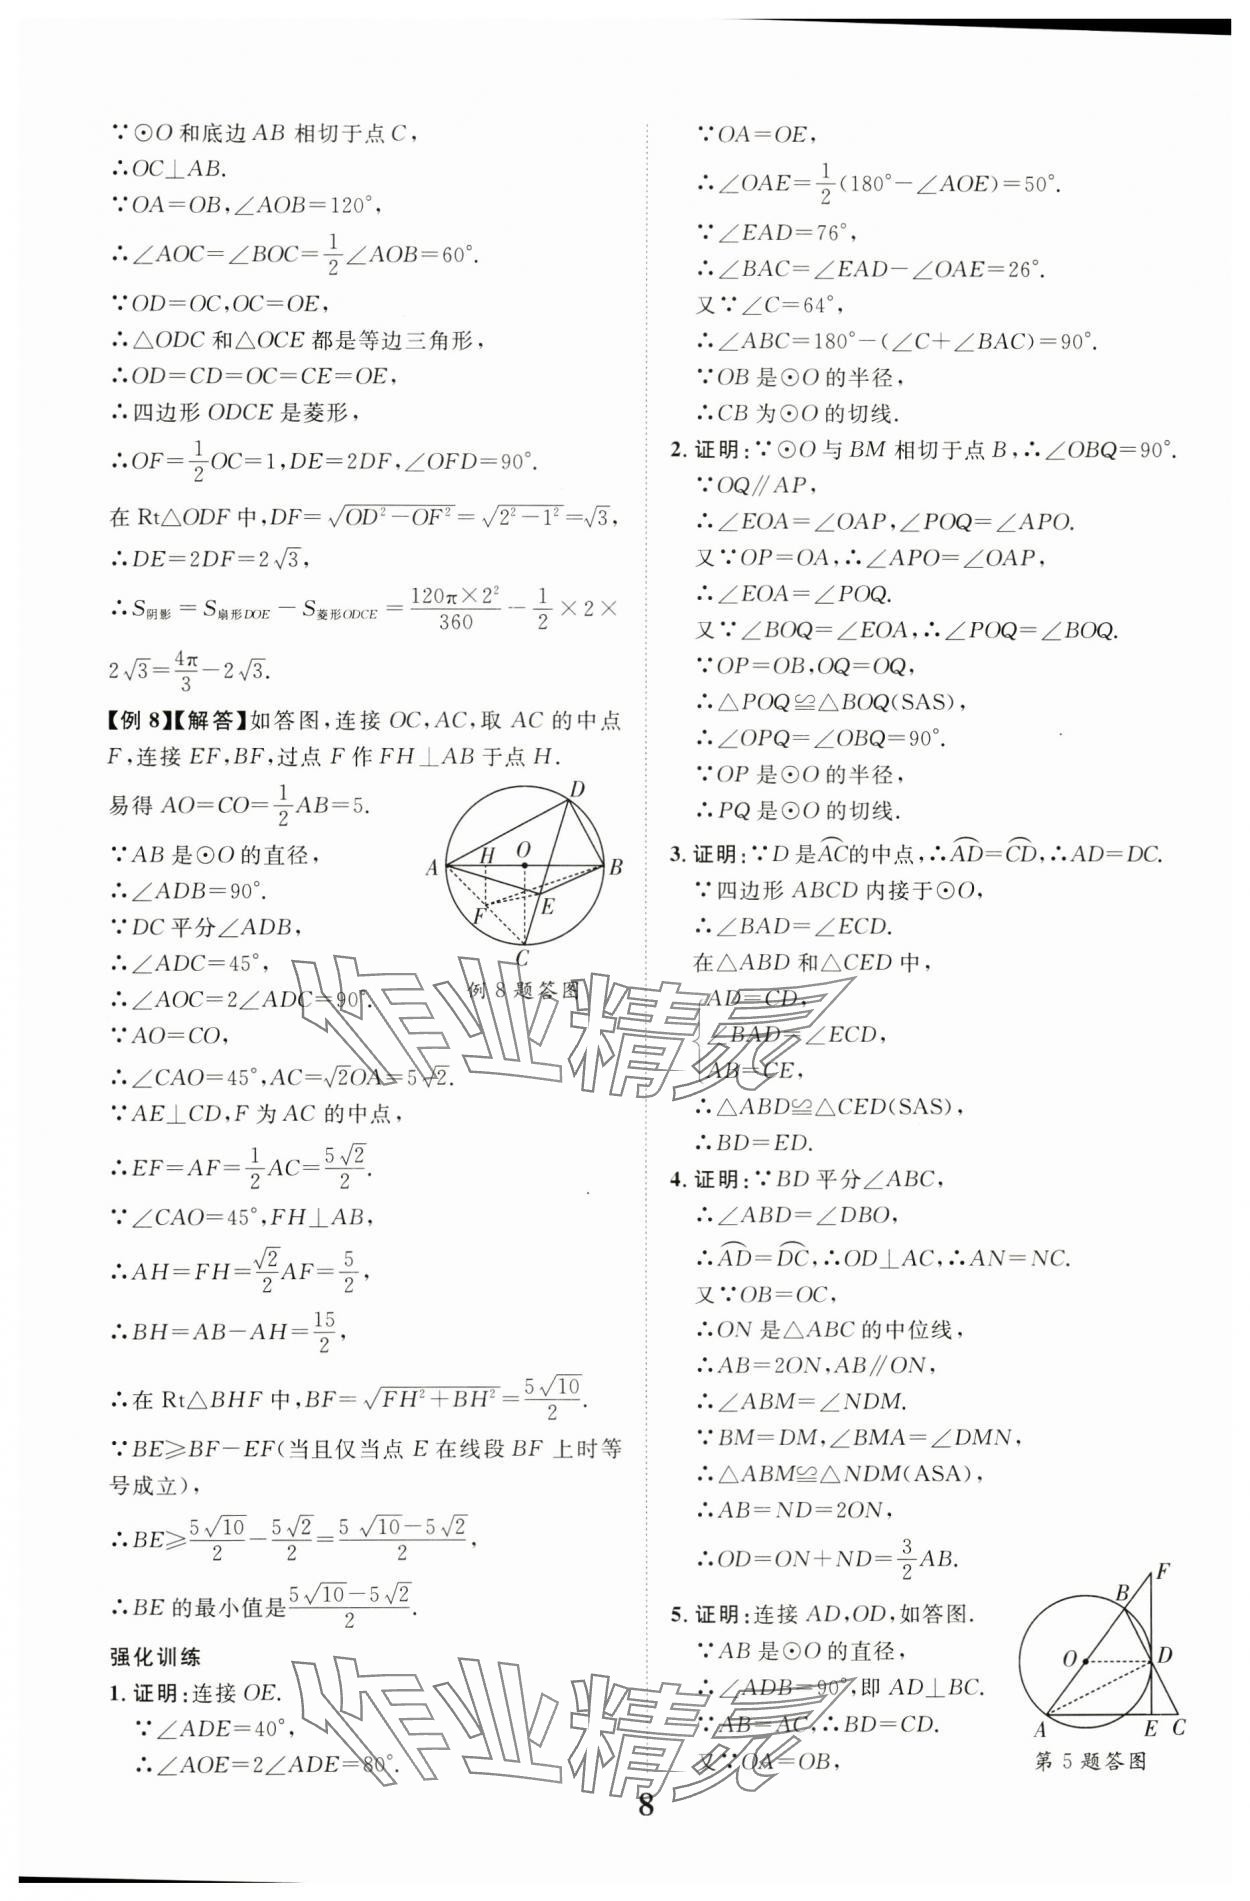 ∵⊙O和底边AB相切于点C,
∴OC⊥AB.
∵OA=OB,∠AOB=120°,
∴∠AOC=∠BOC=\frac{1}{2}∠AOB=60°.
∵OD=OC,OC=OE,
∴△ODC和△OCE都是等边三角形,
∴OD=CD=OC=CE=OE,
∴四边形ODCE是菱形,
∴OF=\frac{1}{2}OC=1,DE=2DF,∠OFD=90°.
在Rt△ODF中,DF=\sqrt{OD²-OF²}=\sqrt{2²-1²}=\sqrt{3},
∴DE=2DF=2\sqrt{3},
∴S_{阴影}=S_{扇形DOE}-S_{菱形ODCE}=\frac{120π×2²}{360}-\frac{1}{2}×2×
2\sqrt{3}=\frac{4π}{3}-2\sqrt{3}.
【例8】【解答】如答图,连接OC,AC,取AC的中点
F,连接EF,BF,过点F作FH⊥AB于点H.
易得AO=CO=\frac{1}{2}AB=5.
∵AB是⊙O的直径,
∴∠ADB=90°.
∵DC平分∠ADB,
∴∠ADC=45°,
∴∠AOC=2∠ADC=90°.
∵AO=CO,
∴∠CAO=45°,AC=\sqrt{2}OA=5\sqrt{2}.
∵AE⊥CD,F为AC的中点,
∴EF=AF=\frac{1}{2}AC=\frac{5\sqrt{2}}{2}.
∵∠CAO=45°,FH⊥AB,
∴AH=FH=\frac{\sqrt{2}}{2}AF=\frac{5}{2},
∴BH=AB-AH=\frac{15}{2},
∴在Rt△BHF中,BF=\sqrt{FH²+BH²}=\frac{5\sqrt{10}}{2}.
∵BE≥BF-EF(当且仅当点E在线段BF上时等
号成立),
∴BE≥\frac{5\sqrt{10}}{2}-\frac{5\sqrt{2}}{2}=\frac{5\sqrt{10}-5\sqrt{2}}{2},
∴BE的最小值是\frac{5\sqrt{10}-5\sqrt{2}}{2}.
D
A H O B
F E
C
例8题答图
强化训练
1.证明:连接OE.
∵∠ADE=40°,
∴∠AOE=2∠ADE=80°.
∵OA=OE,
∴∠OAE=\frac{1}{2}(180°-∠AOE)=50°.
∵∠EAD=76°,
∴∠BAC=∠EAD-∠OAE=26°.
又∵∠C=64°,
∴∠ABC=180°-(∠C+∠BAC)=90°.
∵OB是⊙O的半径,
∴CB为⊙O的切线.
2.证明:∵⊙O与BM相切于点B,∴∠OBQ=90°.
∵OQ∥AP,
∴∠EOA=∠OAP,∠POQ=∠APO.
又∵OP=OA,∴∠APO=∠OAP,
∴∠EOA=∠POQ.
又∵∠BOQ=∠EOA,∴∠POQ=∠BOQ.
∵OP=OB,OQ=OQ,
∴△POQ≌△BOQ(SAS),
∴∠OPQ=∠OBQ=90°.
∵OP是⊙O的半径,
∴PQ是⊙O的切线.
3.证明:∵D是\overset{⌒}{AC}的中点,∴\overset{⌒}{AD}=\overset{⌒}{CD},∴AD=DC.
∵四边形ABCD内接于⊙O,
∴∠BAD=∠ECD.
在△ABD和△CED中,
{AD=CD,
∠BAD=∠ECD,
AB=CE,
∴△ABD≌△CED(SAS),
∴BD=ED.
4.证明:∵BD平分∠ABC,
∴∠ABD=∠DBO,
∴\overset{⌒}{AD}=\overset{⌒}{DC},∴OD⊥AC,∴AN=NC.
又∵OB=OC,
∴ON是△ABC的中位线,
∴AB=2ON,AB∥ON,
∴∠ABM=∠NDM.
∵BM=DM,∠BMA=∠DMN,
∴△ABM≌△NDM(ASA),
∴AB=ND=2ON,
∴OD=ON+ND=\frac{3}{2}AB.
5.证明:连接AD,OD,如答图.
∵AB是⊙O的直径,
∴∠ADB=90°,即AD⊥BC.
∵AB=AC,∴BD=CD.
又∵OA=OB,
F
B
O D
A E C
第5题答图
作业精灵
作业精灵
8